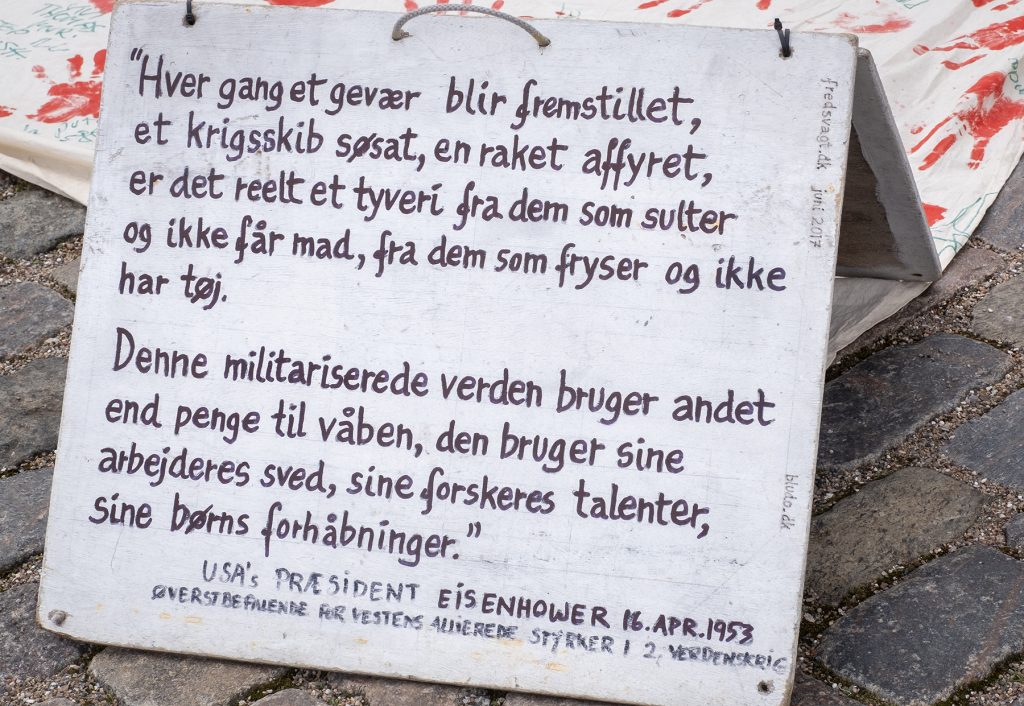 "Hver gang et gevær blir fremstillet,
et krigsskib søsat, en raket affyret,
er det reelt et tyveri fra dem som sulter
og ikke får mad, fra dem som fryser og ikke
har tøj.
Denne militariserede verden bruger andet
end penge til våben, den bruger sine
arbejderes sved, sine forskeres talenter,
sine børns forhåbninger."
USA's PRÆSIDENT EISENHOWER 16.APR.1953
ØVERSTBEFALENDE FOR VESTENS ALLIEREDE STYRKER I 2. VERDENSKRIG
fredsvagt.dk juni 2017
bluto.dk